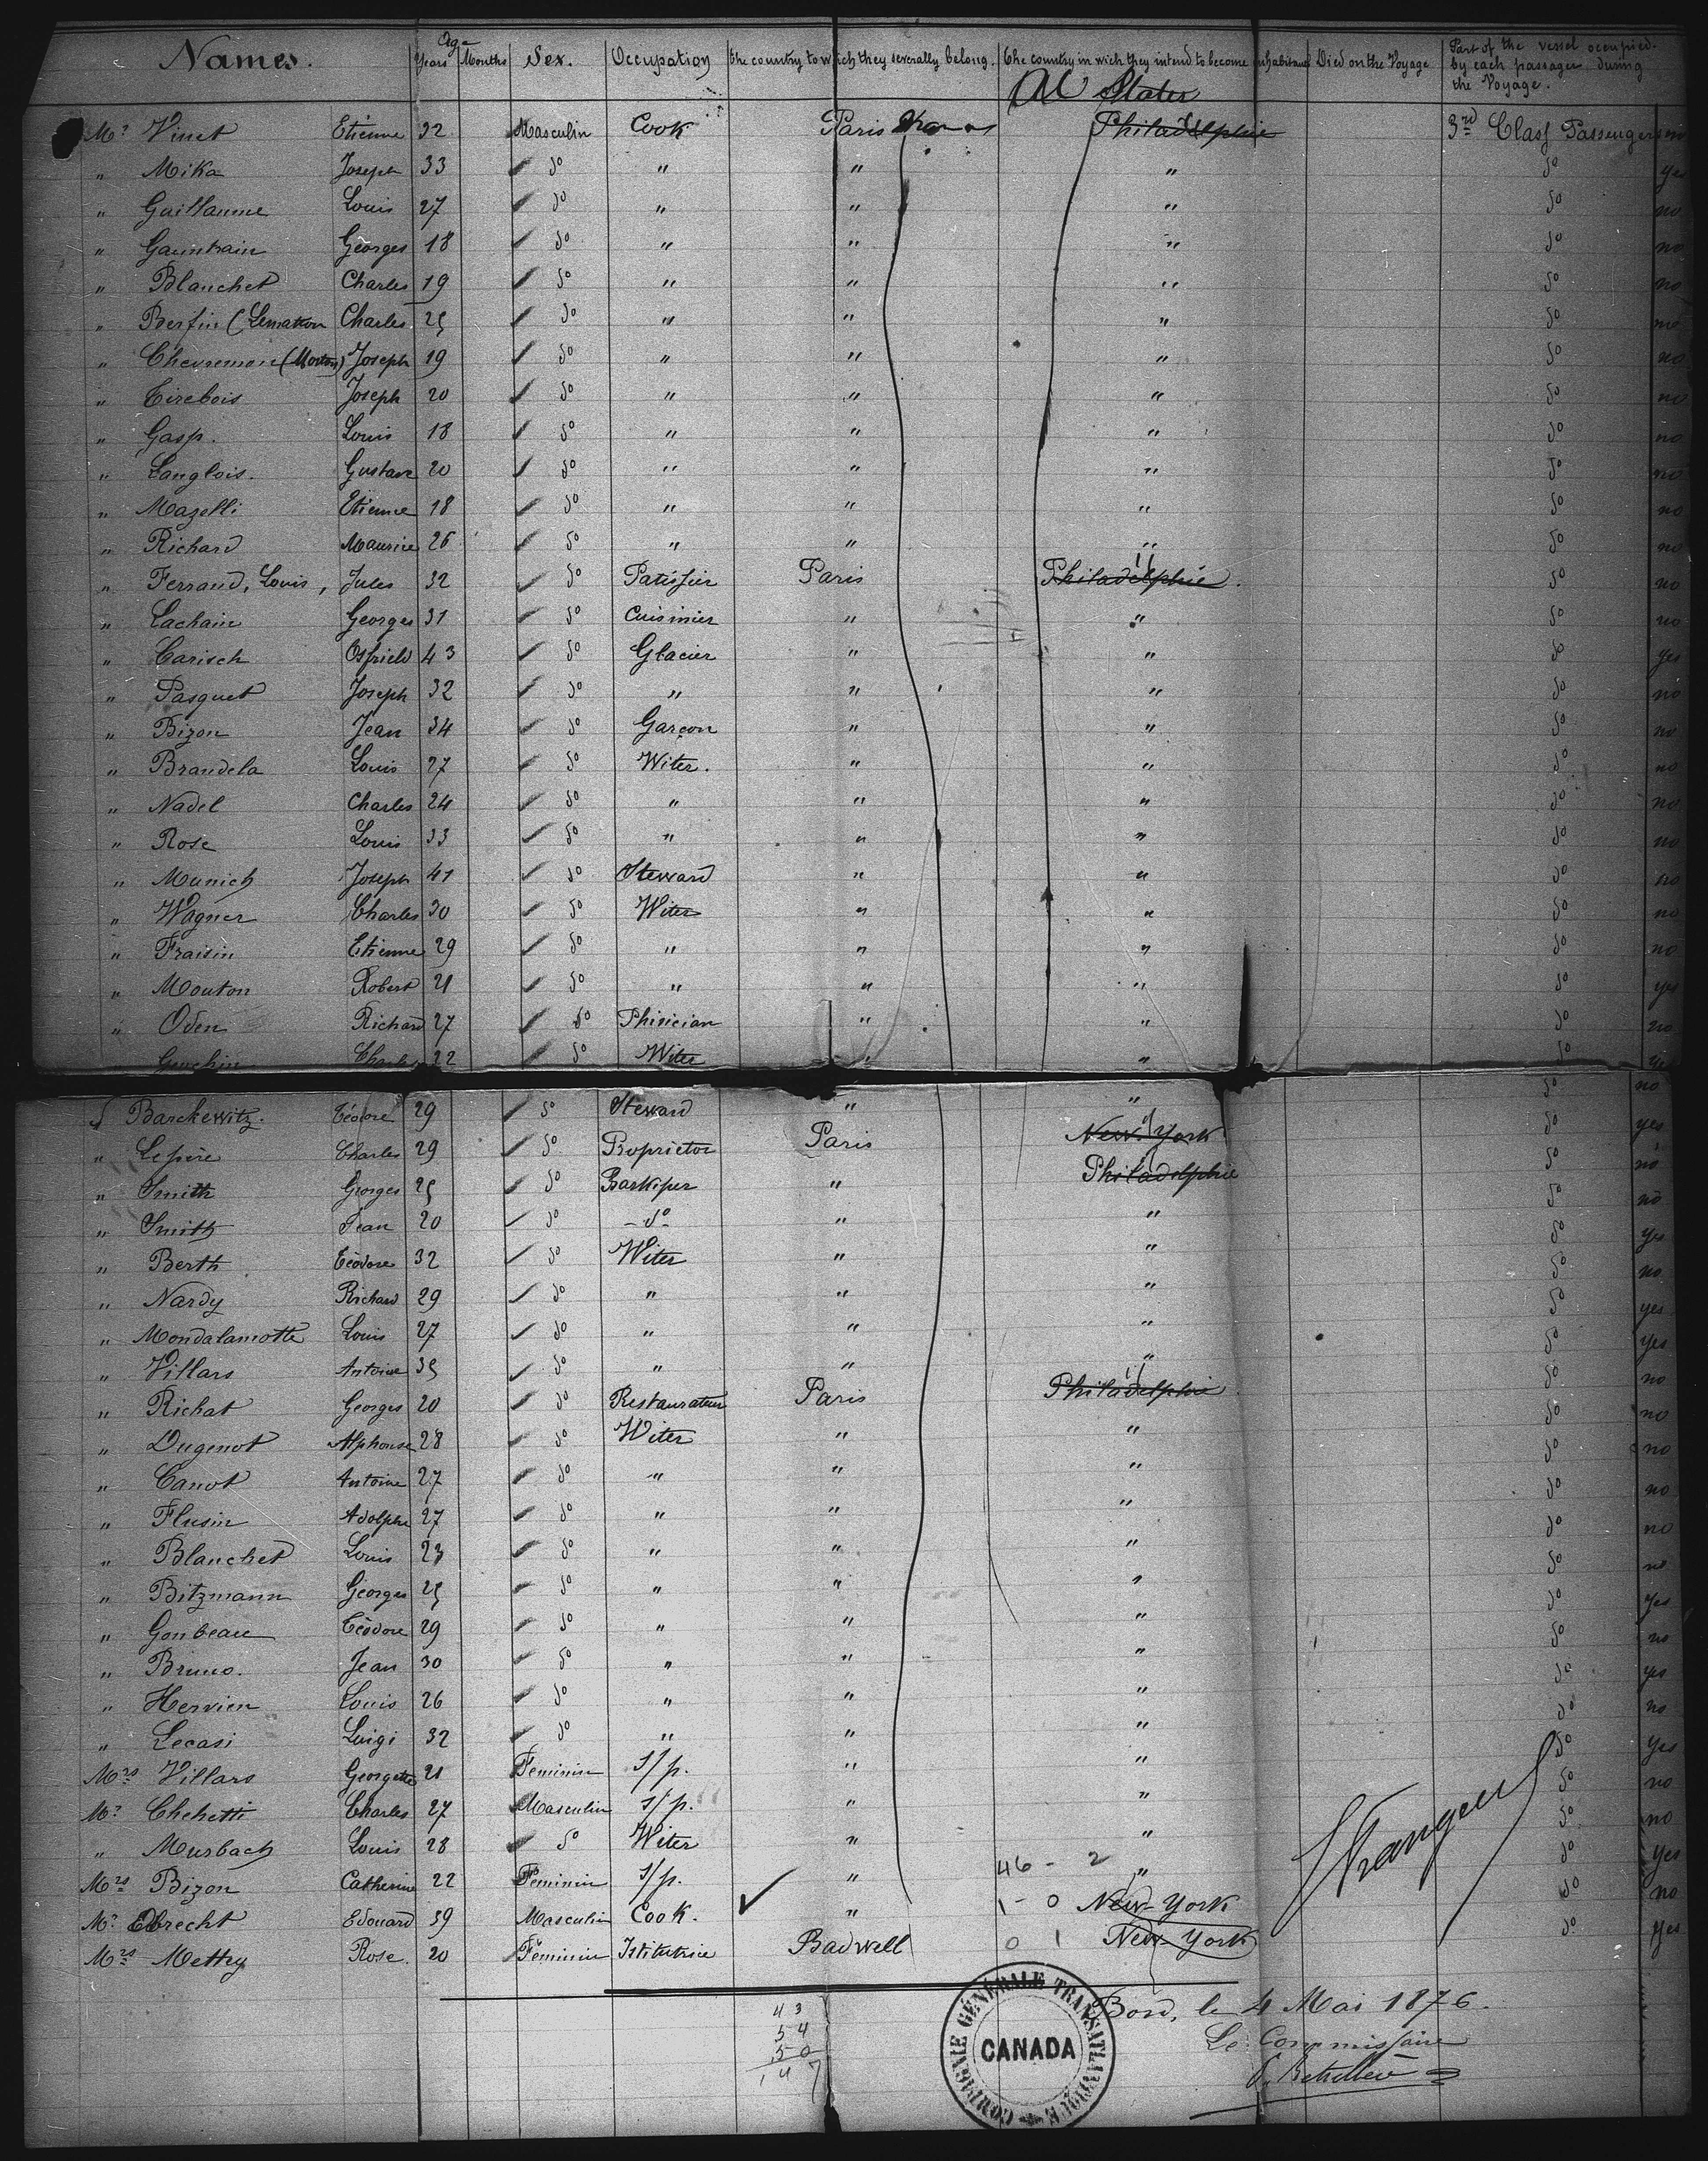 Names. Age Years Months Sex. Occupation the country to wich they severally belong. the country in wich they intend to become inhabitants Died on the Voyage Part of the vessel occupied by each passager during the Voyage.
States
Mr Vinet Etienne 32 Masculin Cook Paris Philadelphie 3rd Class Passengers no
" Mika Joseph 33 do " " " do yes
" Guillaume Louis 27 do " " " do no
" Georges 18 do " " " do no
" Blanchet Charles 19 do " " " do no
" Berfin (Lematton Charles 25 do " " " do no
" Chevremon (Morton) Joseph 19 do " " " do no
" Tirebois Joseph 20 do " " " do no
" Gasp. Louis 18 do " " " do no
" Langlois. Gustave 20 do " " " do no
" Mazelli Etienne 18 do " " " do no
" Richard Maurice 26 do " " " do no
" Ferrand, Louis, Jules 32 do Patissier Paris Philadelphie. do no
" Lachain Georges 31 do Cuisinier " " do no
" Carisch Osfrield 43 do Glacier " " do yes
" Pasquet Joseph 32 do " " " do no
" Bizon Jean 34 do Garçon " " do no
" Brandela Louis 27 do Witer. " " do no
" Nadel Charles 24 do " " " do no
" Rose Louis 33 do " " " do no
" Munich Joseph 41 do Steward " " do no
" Wagner Charles 30 do Witer " " do no
" Fraisin Etienne 29 do " " " do no
" Mouton Robert 21 do " " " do yes
" Oden Richard 27 do Phisician " " do no
" Charles 22 do Witer " " do yes
" Barckewitz. Téodore 29 do Steward " " do no
" Lepère Charles 29 do Proprietor Paris New-York do yes
" Smith Georges 25 do Barkiper " Philadelphie do no
" Smith Jean 20 do - do - " " do no
" Berth Téodore 32 do Witer " " do yes
" Nardy Richard 29 do " " " do no
" Mondalamotte Louis 27 do " " " do yes
" Villars Antoine 35 do " " " do yes
" Richat Georges 20 do Restaurateur Paris Philadelphie do no
" Dugenot Alphonse 28 do Witer " " do no
" Canot Antoine 27 do " " " do no
" Flusin Adolphe 27 do " " " do no
" Blanchet Louis 23 do " " " do no
" Bitzmann Georges 25 do " " " do no
" Gonbeau Téodore 29 do " " " do yes
" Bruno. Jean 30 do " " " do no
" Hervien Louis 26 do " " " do yes
" Lecasi Luigi 32 do " " " do no
Mrs Villars Georgette 21 Feminin S/p. " " do yes
Mr Chehetti Charles 27 Masculin S/p. " " do no
" Mursbach Louis 28 do Witer " " do no
Mrs Bizon Catherine 22 Feminin S/p. " 46 - 2 " do yes
Mr Edbrecht Edouard 39 Masculin Cook. " 1 - 0 New-York do no
Mrs Mettey Rose. 20 Feminin Istitutrice Badwell 0 1 New-York do yes
Strangers
43
54
50
147
COMPAGNIE GÉNÉRALE TRANSATLANTIQUE
CANADA
Bord, le 4 Mai 1876.
Le Commissaire